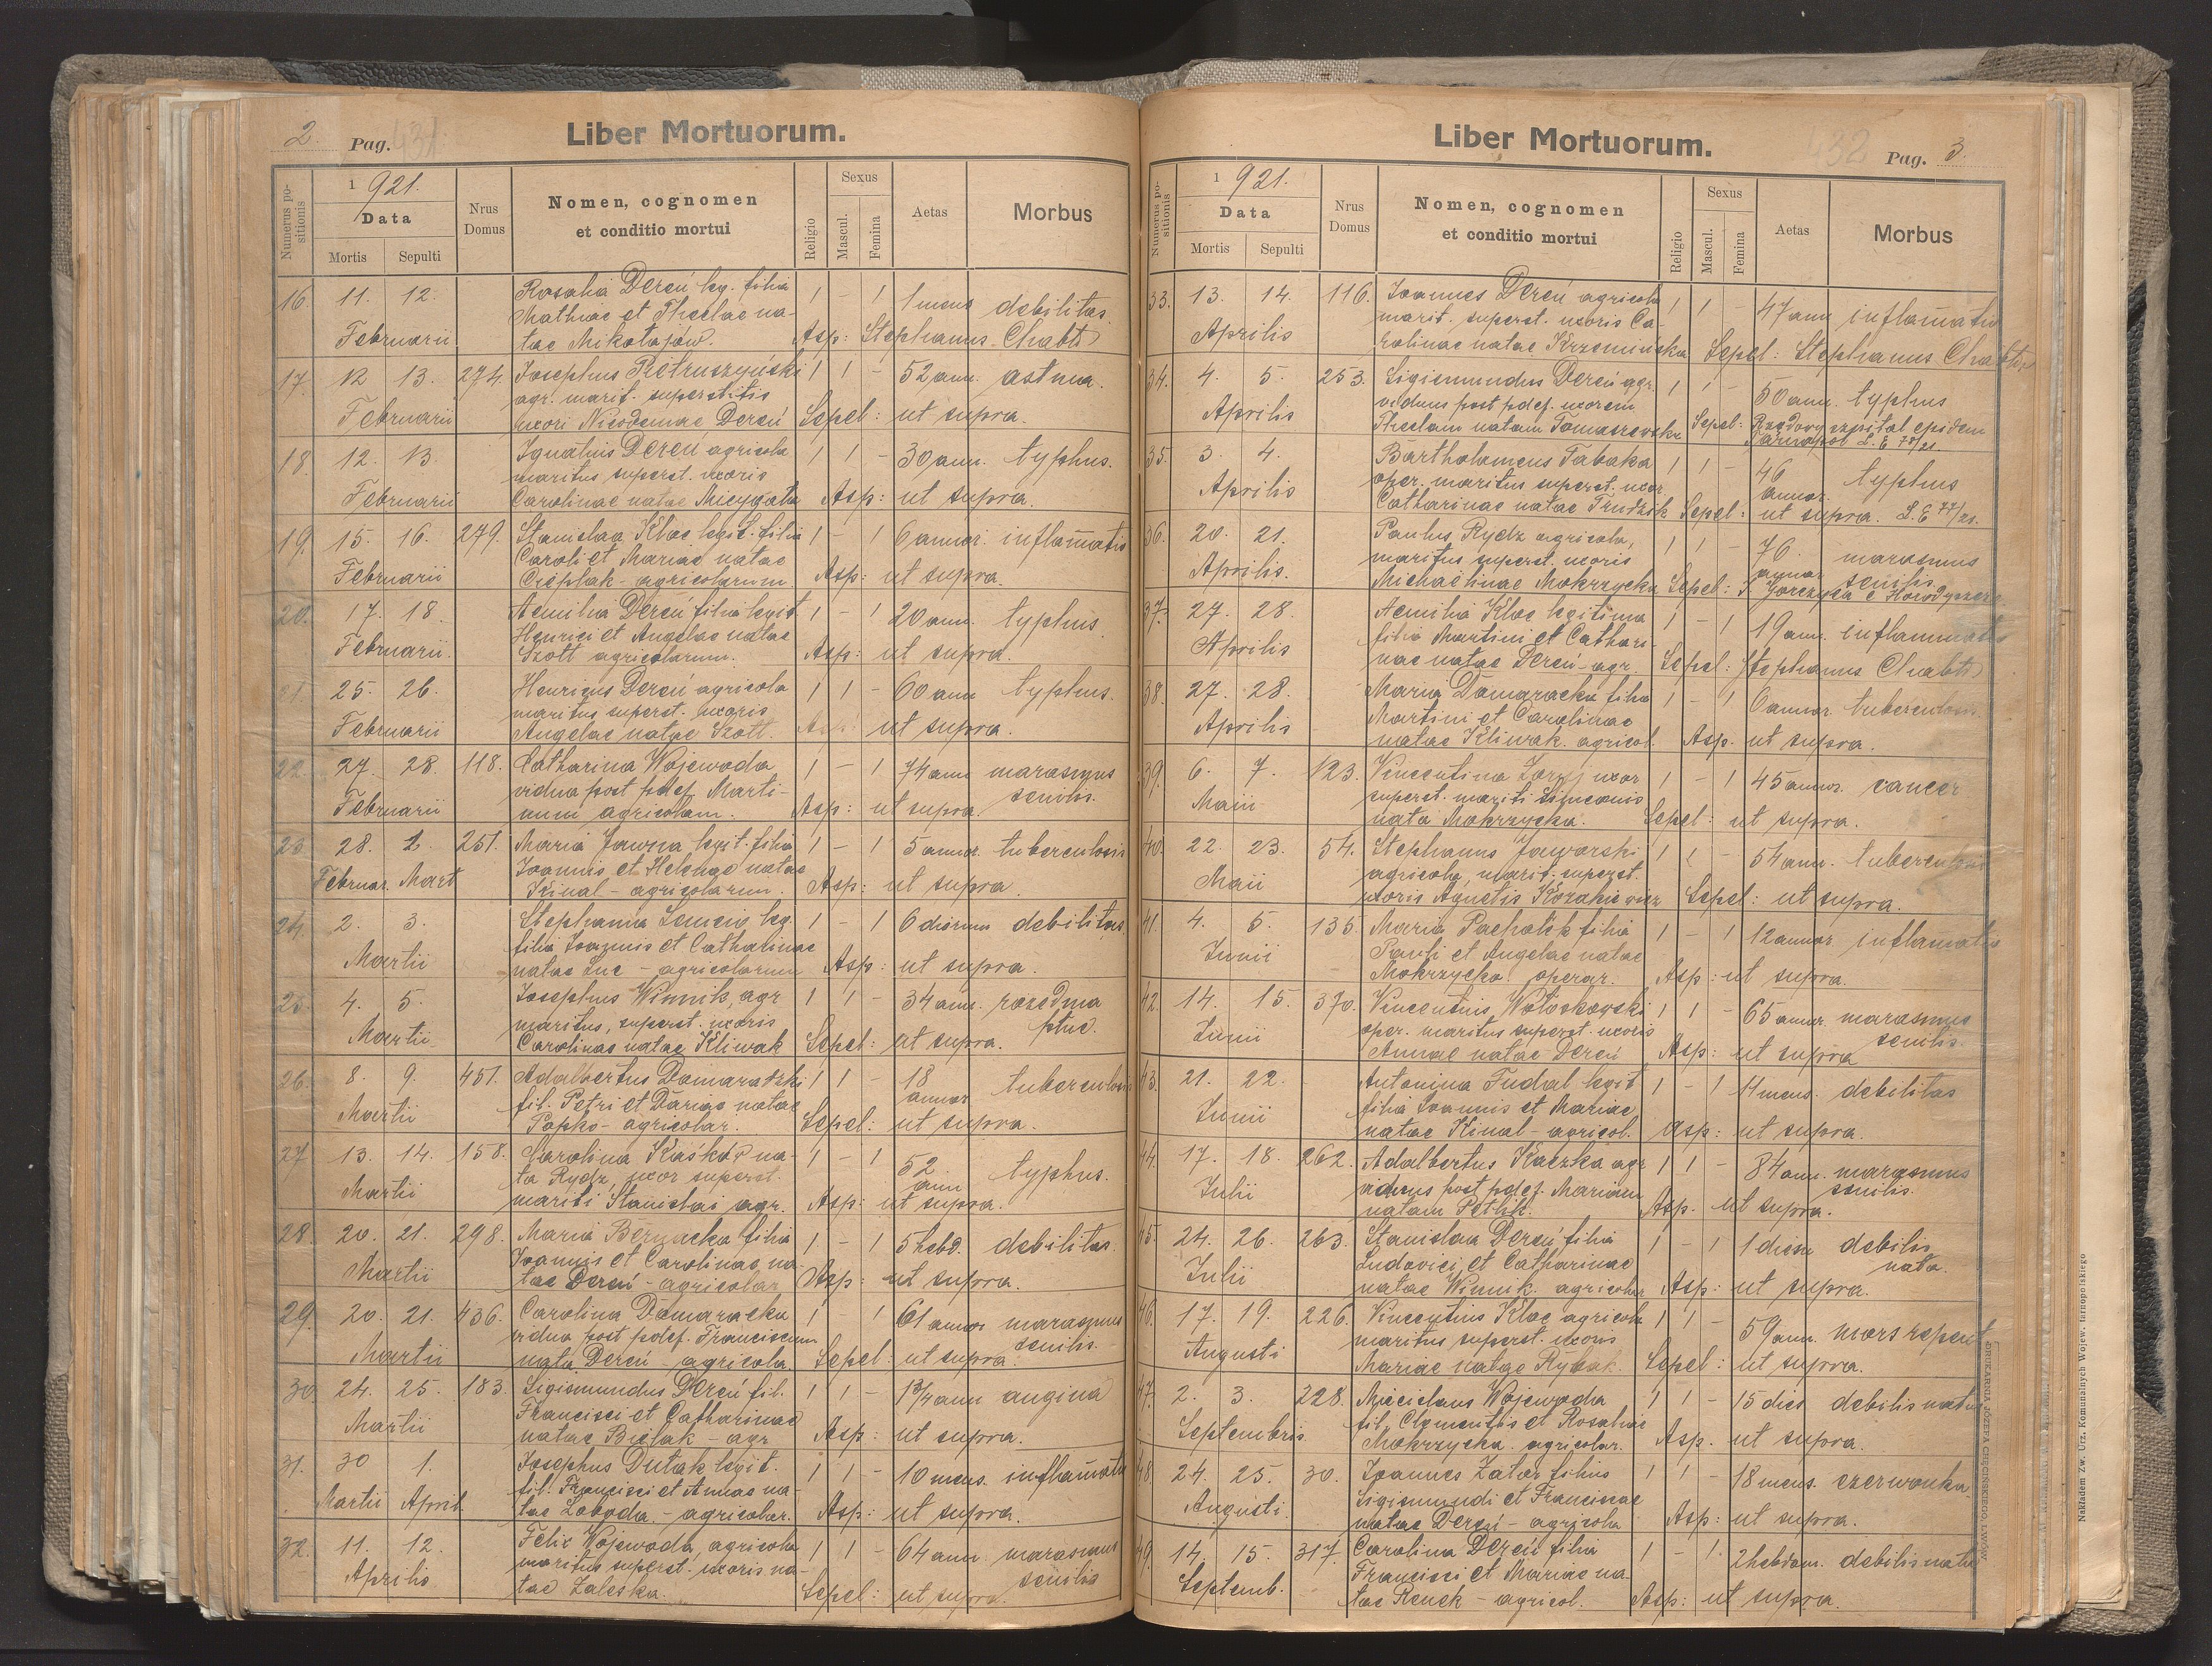 2. Pag. 431
Liber Mortuorum.
Numerus positionis
1921.
Data
Mortis Sepulti
Nrus Domus
Nomen, cognomen et conditio mortui
Religio
Sexus
Mascul. Femina
Aetas
Morbus
16. 11. 12. Rosalia Dereń leg. filia 1 - 1 1 mens debilitas.
Mathiae et Theclae na-
Februarii tae Mikołajów. Asp: Stephanus Chabło
17. 12 13. 274. Josephus Pietruszyński 1 1 - 52 ann. astma.
agr. marit. superstitis
Februarii uxori Nicodemae Dereń Sepel: ut supra.
18. 12. 13. Ignatius Dereń agricola 1 1 - 30 ann. typhus.
maritus superst. uxoris
Februarii Carolinae natae Asp: ut supra.
19. 15. 16. 279. Stanislaa Kloc legit. filia 1 - 1 6 annor. inflam̄atio
Caroli et Mariae natae
Februarii Cieplak - agricolarum Asp: ut supra.
20. 17. 18. Aemilia Dereń filia legit 1 - 1 20 ann. typhus.
Henrici et Angelae natae
Februarii. Szott agricolarum. Asp: ut supra.
21 25. 26. Henricus Dereń agricola 1 1 - 60 ann typhus.
maritus superst. uxoris
Februarii Angelae natae Szott. Asp: ut supra.
22. 27. 28. 118. Catharina Wojewoda 1 - 1 74 ann marasmus
vidua post pdef. Marti- senilis.
Februarii num agricolam. Asp: ut supra.
23 28. 2. 251. Maria Jawna legit. filia 1 - 1 5 annor. tuberculosis
Joannis et Helenae natae
Februar. Mart Kinal - agricolarum. Asp: ut supra.
24. 2. 3. Stephania leg. 1 - 1 6 dierum debilitas
filia Joannis et Catharinae
Martii natae Luc - agricolarum Asp: ut supra.
25. 4. 5. Josephus Winnik, agr 1 1 - 34 ann. rozedma
maritus, superst. uxoris płuc.
Martii Carolinae natae Kliwak Sepel: ut supra.
26. 8. 9. 451. Adalbertus Domaradzki 1 1 - 18 annor tuberculosis
fil. Petri et Dariae natae
Martii Popko - agricolar. Sepel: ut supra.
27 13. 14. 158. Carolina Kaśków na- 1 - 1 52 ann typhus.
ta Rydz, uxor superst.
Martii mariti Stanislai agr. Asp: ut supra.
28. 20. 21. 298. Maria Bernacka filia 1 - 1 5 hebd. debilitas.
Joannis et Carolinae na-
Martii tae Dereń - agricolar Asp: ut supra.
29. 20. 21. 436. Carolina Domaracka 1 1 61 annor marasmus
vidua post pdef. Franciscum senilis.
Martii nata Dereń - agricola Sepel: ut supra.
30. 24. 25. 183. Sigismundus Dereń fil. 1 1 - 1 3/4 ann angina
Francisci et Catharinae
Martii natae Bielak - agr Asp: ut supra.
31. 30 1. Josephus Dutak legit. 1 1 - 10 mens. inflam̄atio
fil. Francisci et Annae na-
Martii April. tae Łoboda - agricolar. Asp: ut supra.
32. 11. 12. Felix Wojewoda, agricola 1 1 - 64 ann marasmus
maritus superst. uxoris na- senilis
Aprilis tae Zaleska. Sepel: ut supra.
Liber Mortuorum.
432 Pag. 3.
Numerus positionis
1921.
Data
Mortis Sepulti
Nrus Domus
Nomen, cognomen et conditio mortui
Religio
Sexus
Mascul. Femina
Aetas
Morbus
33. 13. 14. 116. Joannes Dereń agricola 1 1 - 47 ann inflam̄atio
marit. superst. uxoris Ca-
Aprilis rolinae natae Krzemińska Sepel: Stephanus Chabło
34. 4. 5. 253. Sigismundus Dereń agr. 1 1 - 50 ann. typhus
viduus post pdef. uxorem
Aprilis Theclam natam Tomaszewska Sepel: Rządowy szpital epidem
Tarnopol L. E 78/21.
35. 3. 4. Bartholameus Tabaka 1 1 - 46 annor. typhus
oper. maritus superst. uxor
Aprilis Catharinae natae Trudzik Sepel: ut supra. L. E 77/21.
36. 20. 21. Paulus Rydz agricola, 1 1 - 76. annor marasmus
maritus superst. uxoris senilis.
Aprilis. Michaelinae Mokrzycka Sepel:
37. 27. 28. Aemilia Kloc legitima 1 - 1 19 ann. inflammatio
filia Martini et Cathari-
Aprilis nae natae Dereń - agr. Sepel: Stephanus Chabło
38. 27. 28. Maria Domaracka filia 1 - 1 6 annor. tuberculosis
Martini et Carolinae
Aprilis natae Kliwak. agricol. Asp. ut supra.
39. 6. 7. 123. Vincentina uxor 1 - 1 45 annor. cancer
superst. mariti Simeonis
Maii nata Mokrzycka. Sepel: ut supra.
40. 22. 23. 54. Stephanus Jaworski 1 1 - 54 ann. tuberculosis
agricola, marit. superst.
Maii uxoris Agnetis Kozakiewicz Sepel: ut supra.
41. 4. 5. 135. Maria Pacholik filia 1 - 1 12 annor inflamatio
Pauli et Angelae natae
Junii Mokrzycka operar. Asp: ut supra.
42. 14. 15. 370. Vincentius Wołoskowski 1 1 - 65 annor. marasmus
oper. maritus superst. uxoris senilis.
Junii Annae natae Dereń Asp: ut supra
43. 21. 22. Antonina Tudal legit 1 - 1 14 mens. debilitas
filia Joannis et Mariae
Junii natae Kinal - agricol. Asp: ut supra.
44. 17. 18. 262. Adalbertus Kaczka agr 1 1 - 84 ann. marasmus
viduus post pdef. Mariam senilis.
Julii natam Asp. ut supra.
45. 24. 26. 263. Stanislaa Dereń filia 1 - 1 1 diem debilis
Ludovici et Catharinae nata.
Julii natae Winnik. agricolar Asp: ut supra.
46. 17. 19. 226. Vincentius Kloc agricola 1 1 - 59 ann. mors repent
maritus superst. uxoris
Augusti Mariae natae Rybak. Sepel: ut supra.
47. 2. 3. 228. Miecislaus Wojewoda 1 1 - 15 dies debilis natus
fil. Clementis et Rosaliae
Septembris Mokrzycka. agricolar. Asp. ut supra.
48. 24. 25. 30. Joannes Zator filius 1 1 - 18 mens. czerwonka.
Sigismundi et Franciscae
Augusti. natae Dereń - agricola Asp: ut supra.
49. 14. 15. 317. Carolina Dereń filia 1 - 1 2 hebdom. debilis nata
Francisci et Mariae na-
Septemb. tae Reuck - agricol. Asp: ut supra.
Nakładem Zw. Urz. Komunalnych Wojew. tarnopolskiego
DRUKARNIA JÓZEFA CHĘCIŃSKIEGO, LWÓW